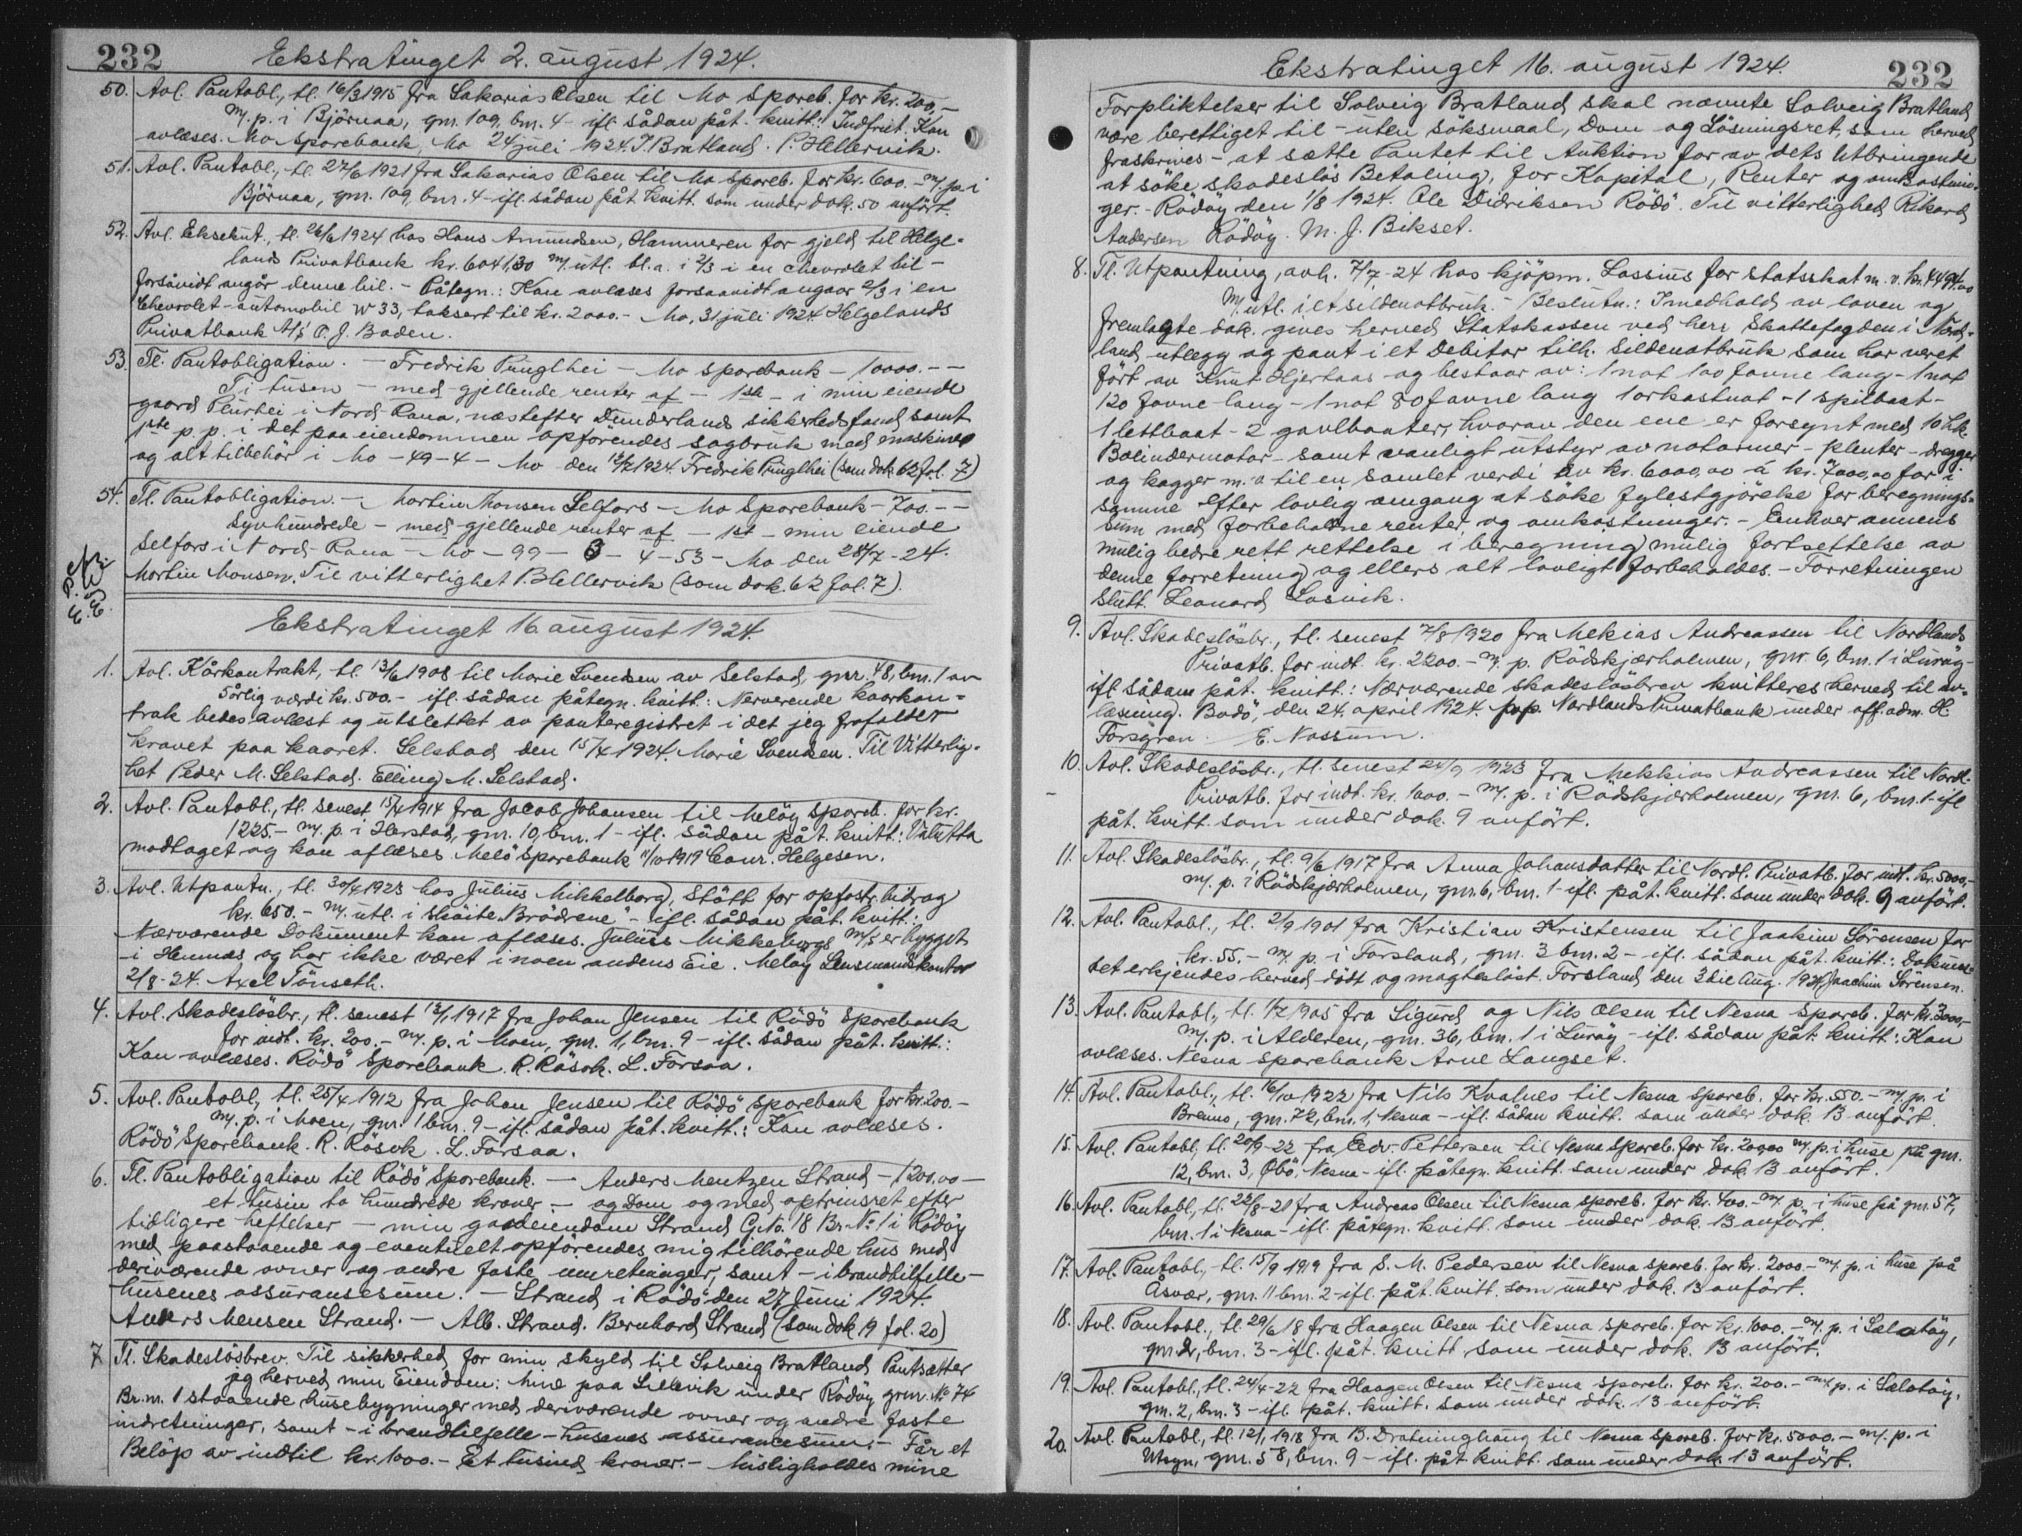 232
Ekstratinget 2. august 1924.
50. Avl. Pantobl., tl. 16/3 1915 fra Sakarias Olsen til Mo Spareb. for kr. 200,-
m/. p. i Björnaa, gnr. 109, bnr. 4 - ifl sådan påt. kvitt.: Indfriet. Kan
avlæses. Mo Sparebank, Mo 24 juli 1924. J. Bratland. P. Hellervik.
51. Avl. Pantobl., tl. 27/6 1921 fra Sakarias Olsen til Mo Spareb. for kr. 600.- m/. p. i
Björnaa, gnr. 109, bnr. 4 - ifl. sådan påt. kvitt. som under dok. 50 anfört.
52. Avl. Eksekut., tl. 26/6 1924 hos Hans Amundsen, Hammeren for gjeld til Helge-
lands Privatbank kr. 6041,30 m/. utl. bl.a. i 2/3 i en chevrolet bil -
forsåvidt angår denne bil. - Påtegn.: Kan avlæses forsaavidt angaar 2/3 i en
Chevrolet-automobil W 33, taksert til kr. 2000.- Mo, 31 juli 1924. Helgelands
Privatbank A/S O. J. Baden.
53. Tl. Pantobligation. - Fredrik Pruglhei - Mo Sparebank - 10000.--
Ti tusen - med gjellende renter af - 1ste - i min eiende
gaard Plurhei i Nord Rana, næstefter Dunderland sikkerhedsfond samt
1ste p. p. i det paa eiendommen opförendes sagbruk med maskiner
og alt tilbehör i Mo - 49 - 4 - Mo den 12/7 1924 Fredrik Pruglhei (som dok. 62 fol. 7)
54. Tl. Pantobligation - Martin Monsen Selfors - Mo Sparebank - 700.--
Syvhundrede - med gjellende renter af - 1ste - min eiende
Selfors i Nord-Rana - Mo - 99 - 3 - 4 - 53 - Mo den 28/7 - 24.
Martin Monsen, Til vitterlighet P. Hellervik (som dok. 62 fol. 7).
Ekstratinget 16 august 1924.
1. Avl. Kårkontrakt, tl. 13/6 1908 til Marie Svendsen av Selstad, gnr. 48, bnr. 1 av
5årlig værdi kr. 500.- ifl. sådan påtegn. kvitt.: Nerverende kaarkon-
trak bedes avlest og utslettet av panteregistret i det jeg frafalder
kravet paa kaaret. Selstad den 15/4 1924. Marie Svendsen. Til Vitterlig-
het Peder M. Selstad. Elling M. Selstad.
2. Avl. Pantobl., tl. senest 15/4 1914 fra Jacob Johansen til Melöy Spareb. for kr.
1225.- m/. p. i Herstad, gnr. 10, bnr. 1 - ifl. sådan påt. kvitt.: Valutta
modtaget og kan aflæses Melö Sparebank 11/10 1919 Conr. Helgesen.
3. Avl. Utpantn., tl. 30/4 1923 hos Julius Mikkelborg, Stött for opfostr. bidrag
kr. 650.- m/. utl. i sköite "Brödrene" - ifl. sådan påt. kvitt.:
Nærværende Dokument kan aflæses. Julius Mikkelborgs M/S er bygget
i Hemnes og har ikke været i noen andens Eie. Melöy Lensmandskontor
2/8 - 24. Axel Tönseth.
4. Avl. Skadeslösbr., tl. senest 13/1 1917 fra Johan Jensen til Rödö Sparebank
for indt. kr. 200.- m/. p. i Moen, gnr. 1, bnr. 9 - ifl. sådan påt. kvitt.:
Kan avlæses. Rödö Sparebank R. Råsok. L. Forsaa.
5. Avl. Pantobl, tl. 25/4 1912 fra Johan Jensen til Rödö Sparebank for kr. 200.-
m/. p. i Moen, gnr. 1 bnr. 9 - ifl. sådan påt. kvitt.: Kan avlæses.
Rödö Sparebank. R. Råsok. L. Forsaa.
6. Tl. Pantobligation til Rödö Sparebank. - Anders Mentzen Strand - 1200.00 -
et tusin to hundrede kroner - og Dom og med optrinsret efter
tidligere heftelser - min gaardeiendom Strand G. No. 18 Br. No. 1 i Rödöy
med paastaaende og eventuelt opförendes mig tilhörende hus med
derværende ovner og andre faste innretninger, samt - i brandtilfelle -
husenes assuransesum. - Strand i Rödö den 27 Juni 1924.
Anders Mensen Strand. - Alb. Strand. Bernhard Strand (som dok 19 fol. 20)
7 Tl. Skadeslösbrev. Til sikkerhed for min skyld til Solveig Bratland Pantsætter
jeg herved min Eiendom: Mine paa Sellevik under Rödöy grnr. No 74
Br. nr. 1 staaende husebygninger med derværende ovner og andre faste
indretninger, samt - i brandtilfelle - husenes assurancesum. - Får et
Belöp av indtil kr. 1000.- Et tusind kroner. - Misligholdes mine
232
Ekstratinget 16. august 1924.
Forpliktelser til Solveig Bratland, skal nævnte Solveig Bratland
være berettiget til - uten söksmaal, Dom og Lösningsret, som herved
fraskrives - at sætte Pantet til Auktion for av dets Utbringende
at söke skadeslös Betaling, for Kapital, Renter og omkostnin-
ger. - Rödöy den 1/8 1924. Ole Didriksen Rödö. Til vitterlighed Rikard
Andersen Rödöy. M. J. Bikset.
8. Tl. Utpantning, avh. 7/7-24 hos kjöpm. Lossius for statsskat m. v. kr. 4494.00
m/. utl. i et sildenotbruk - Beslutn.: I medhold av loven og
fremlagte dok. gives herved Statskassen ved herr Skattefogden i Nord-
land utlegg og pant i et Debitor tilh. sildenotbruk som har veret
fört av Knut Hjertaas og bestaar av: 1 not 100 favne lang - 1 not
120 favne lang - 1 not 80 favne lang 1 orkastnot - 1 spilbaat -
1 lettbaat - 2 gavlbaater, hvorav den ene er forsynt med 10 hk.
Bolindermotor - samt vanligt utstyr av notarmer - klenter - dregger
og kagger m. a til en samlet verdi av kr. 6000,00 á kr. 7000,00 for i
samme efter lovlig omgang at söke fylestgjörelse for beregnings-
sum med forbeholdne renter og omkostninger. - Enhver annens
mulig bedre rett rettelse i beregning, mulig fortsettelse av
denne forretning og ellers alt lovligt forbeholdes. - Forretningen
slutt. Leonard Losvik.
9. Avl. Skadeslösbr., tl. senest 7/8 1920 fra Mekias Andreassen til Nordlands
Privatb. for indt. kr. 2200.- m/. p. Rödskjærholmen, gnr. 6, bnr. 1 i Luröy -
ifl. sådan påt. kvitt.: Nærværende skadeslösbrev kvitteres herved til av-
læsning. Bodö, den 24. april 1924. pop. Nordlands Privatbank under off. adm. H.
Forsgren. E. Nossum.
10. Avl. Skadeslösbr., tl. senest 24/9 1923 fra Mekkias Andreassen til Nordl.
Privatb. for indt. kr. 1000.- m/. p. i Rödskjærholmen, gnr. 6, bnr. 1 - ifl
påt. kvitt. som under dok. 9 anfört.
11. Avl. Skadeslösbr., tl. 9/6 1917 fra Anna Johansdatter til Nordl. Privatb. for indt. kr. 5000,-
m/. p. i Rödskjærholmen, gnr. 6, bnr. 1 - ifl. påt. kvitt. som under dok. 9 anfört.
12. Avl. Pantobl., tl. 2/9 1901 fra Kristian Kristensen til Joakim Sörensen for
kr. 55.- m/. p. i Forsland, gnr. 3 bnr. 2 - ifl. sådan påt. kvitt.: Dokumen-
tet erkjendes herved dödt og magteslöst. Forsland, den 3die Aug. 1924 Joachim Sörensen.
13. Avl. Pantobl., tl. 1/2 1905 fra Sigurd og Nils Olsen til Nesna Spareb. for kr. 3000,-
m/. p. i Alderen, gnr. 36, bnr. 1 i Luröy - ifl. sådan påt. kvitt.: Kan
avlæses. Nesna Sparebank Arne Langset.
14. Avl. Pantobl., tl. 16/10 1922 fra Nils Kvalnes til Nesna Spareb. for kr. 550.- m/. p. i
Brenno, gnr. 72, bnr. 1, Nesna - ifl. sådan kvitt. som under dok. 13 anfört.
15. Avl. Pantobl, tl. 20/9-22 fra Edv. Pettersen til Nesna Spareb. for kr. 2000 m/. p. i huse på gnr.
12, bnr. 3, Öbö, Nesna - ifl. påtegn. kvitt. som under dok. 13 anfört.
16. Avl. Pantobl, tl. 22/8-21 fra Andreas Olsen til Nesna Spareb. for kr. 400.- m/. p. i huse på gnr. 57,
bnr. 1 i Nesna - ifl. påtegn. kvitt. som under dok. 13 anfört.
17. Avl. Pantobl., tl. 15/9 1919 fra S. M. Pedersen til Nesna Spareb. for kr. 2000.- m/. p. i huse på
Åsvær, gnr. 11 bnr. 2 - ifl. påt. kvitt. som under dok. 13 anfört.
18. Avl. Pantobl., tl. 29/6 18 fra Haagen Olsen til Nesna Spareb. for kr. 1000.- m/. p. i Salatöy,
gnr. 2, bnr. 3 - ifl. påt. kvitt. som under dok. 13 anfört.
19. Avl. Pantobl., tl. 24/4-22 fra Haagen Olsen til Nesna Spareb. for kr. 200.- m/. p. i Salatöy,
gnr. 2, bnr. 3 - ifl. påt. kvitt. som under dok. 13 anfört.
20. Avl. Pantobl., tl. 12/1 1918 fra B. Dratninghaug til Nesna Spareb. for kr. 5000.- m/. p. i
Utsyn, gnr. 58, bnr. 9 - ifl. påt. kvitt. som under dok. 13 anfört.